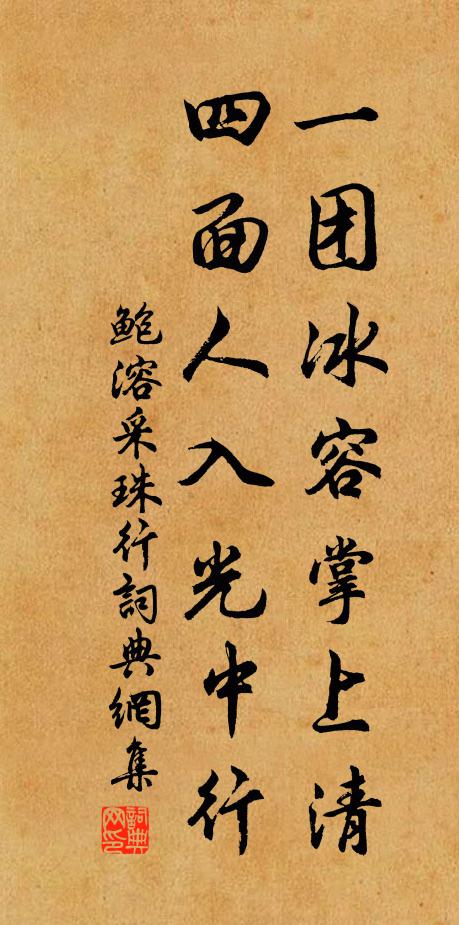 一团冰容掌上清
四面人入光中行
鲍溶采珠行詞典網集
詞典网印